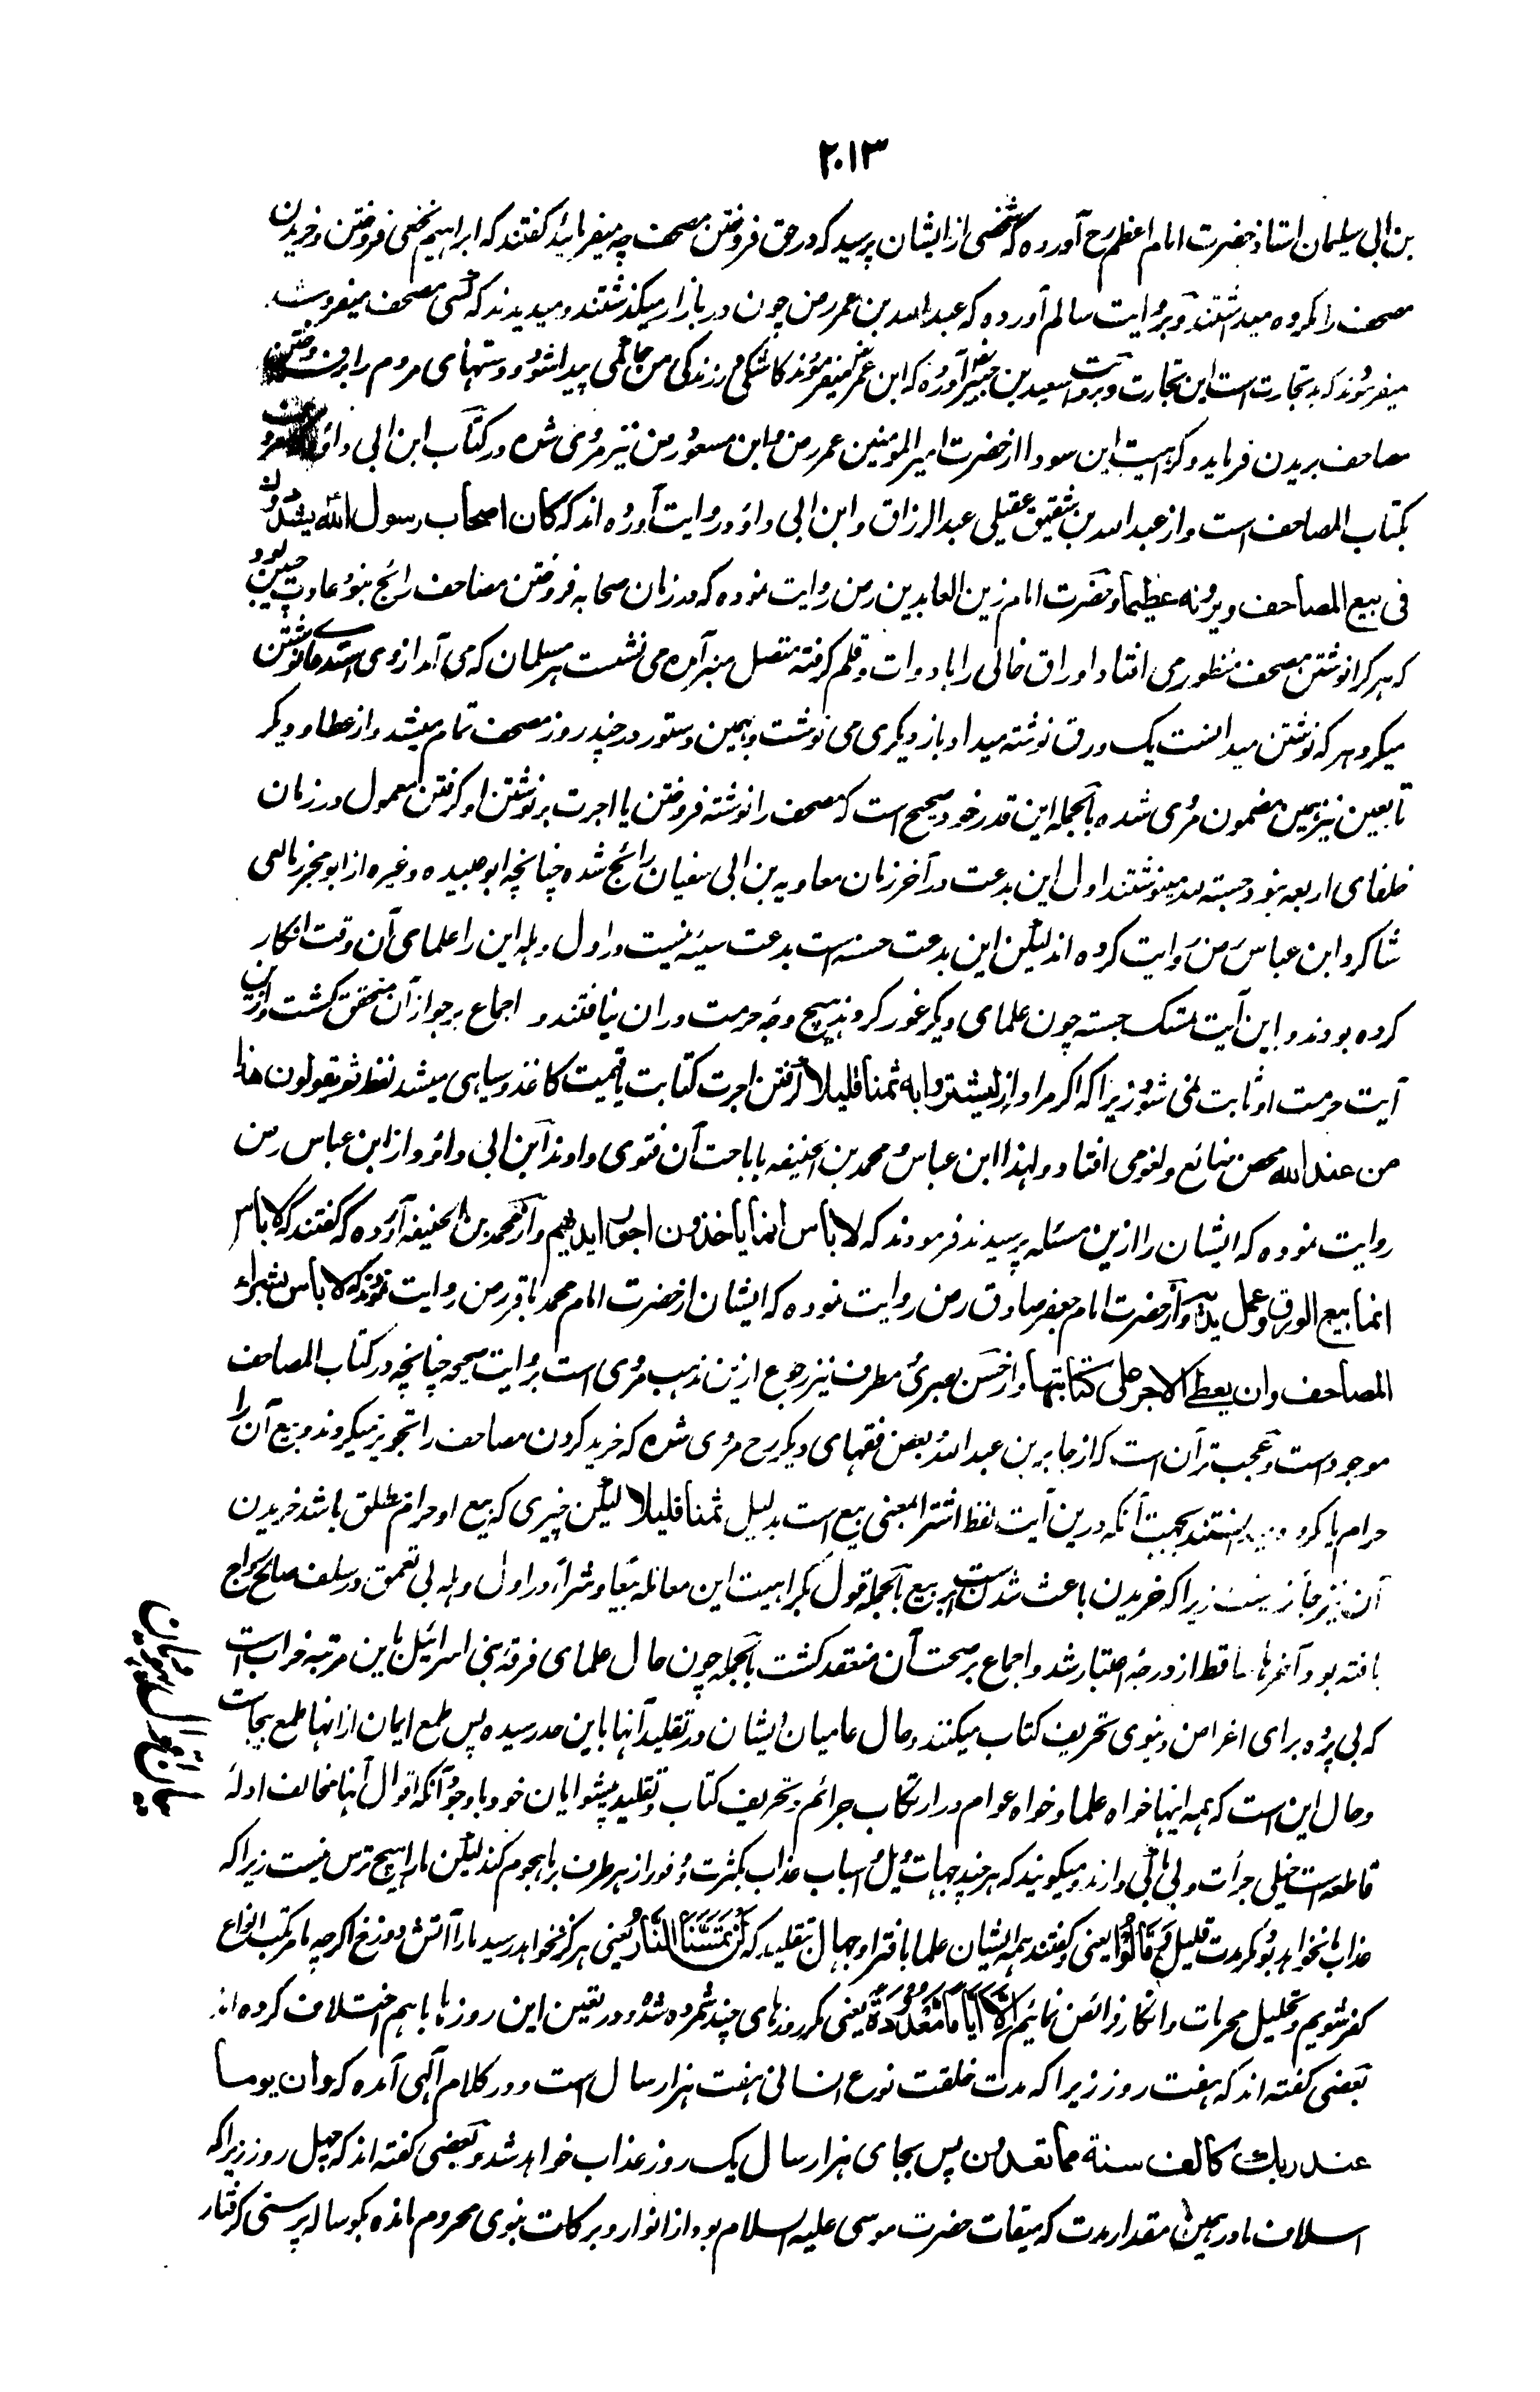 ٢٠١٣
بن ابی سلیمان استاذ حضرت امام اعظم رح آورده که شخصی از ایشان پرسید که در حق فروختن مصحف چه میفرمایند گفتند که ابراهیم نخعی فروختن و خریدن
مصحف را مکروه میداشتند و بروایت سالم آورده که عبدالله بن عمر رض چون در بازار میگذشتند و میدیدند که کسی مصحف میفروشد
میفرمودند که بد تجارت است این تجارت و بروایت سعید بن جبیر آورده که ابن عمر رض میفرمودند کاشکی در زندگی من حاکمی پیدا شود و دستهای مردم را در فروختن
مصاحف بریدن فرماید و کراهیت این سودا از حضرت امیر المومنین عمر رض و ابن مسعود رض نیز مروی شده در کتاب ابن ابی داؤد معروف
بکتاب المصاحف است و از عبدالله بن شقیق عقیلی عبدالرزاق و ابن ابی داؤد روایت آورده اند که کان اصحاب رسول الله یشددون
فی بیع المصاحف و یرونه عظیما و حضرت امام زین العابدین رض روایت نموده که در زمان صحابه فروختن مصاحف رائج نبود عادت چنین بود
که هر کرا نوشتن مصحف منظور می افتاد اوراق خالی را با دوات و قلم گرفته متصل منبر آمده می نشست هر مسلمان که می آمد از وی استدعا نوشتن
میکرد هر که نوشتن میدانست یک ورق نوشته میداد باز دیگری می نوشت و بهمین دستور در چند روز مصحف تمام میشد و از عطا و دیگر
تابعین نیز همین مضمون مروی شده بالجمله این قدر خود صحیح است که مصحف را نوشته فروختن یا اجرت بر نوشتن او گرفتن معمول در زمان
خلفای اربعه نبود حسبة لله مینوشتند اول این بدعت در آخر زمان معاویه بن ابی سفیان رائج شده چنانچه ابو عبیده و غیره از ابو مجلز تابعی
شاگرد ابن عباس رض روایت کرده اند لیکن این بدعت حسنه است بدعت سیئه نیست در اول وهله این را علمای آن وقت انکار
کرده بودند و باین آیت تمسک جسته چون علمای دیگر غور کردند هیچ وجه حرمت دران نیافتند و اجماع بر جواز آن متحقق گشت و ازین
آیت حرمت او ثابت نمی شود زیرا که اگر مراد از لیشتروا به ثمنا قلیلا گرفتن اجرت کتابت یا قیمت کاغذ و سیاهی میشد لفظ ثم یقولون هذا
من عند الله محض ضائع و لغو می افتاد و لهذا ابن عباس و محمد بن الحنیفه باباحت آن فتوی دادند ابن ابی داؤد از ابن عباس رض
روایت نموده که ایشان را ازین مسئله پرسیدند فرمودند که لا باس انما یاخذون اجور ایدیهم و از محمد بن الحنیفه آورده که گفتند که لا باس
انما بیع الورق و عمل یدیه و از حضرت امام جعفر صادق رض روایت نموده که ایشان از حضرت امام محمد باقر رض روایت نمودند که لا باس بشراء
المصاحف وان یعطی الاجر علی کتابتها و از حسن بصری و مطرف نیز رجوع ازین مذهب مروی است بروایت صحیحه چنانچه در کتاب المصاحف
موجود است و عجب تر آن است که از جابر بن عبدالله و بعض فقهای دیگر رح مروی شده که خرید کردن مصاحف را تجویز میکردند و بیع آن را
حرام یا مکروه میدانستند بجهت آنکه درین آیت لفظ اشترا بمعنی بیع است بدلیل ثمنا قلیلا لیکن چیزی که بیع او حرام مطلق باشد خریدن
آن نیز جائز نیست زیرا که خریدن باعث شدن است بر بیع بالجمله قول بکراهیت این معامله بیعا و شراء در اول وهله بی تعمق در سلف صالح رواج
یافته بود آخرها ساقط از درجه اعتبار شد و اجماع بر صحت آن منعقد گشت بالجمله چون حال علمای فرقه بنی اسرائیل باین مرتبه خراب است
که بی پرده برای اغراض دنیوی تحریف کتاب میکنند و حال عامیان ایشان در تقلید آنها باین حد رسیده پس طمع ایمان از انها طمع بیجاست
و حال این است که همه اینها خواه علما و خواه عوام در ارتکاب جرائم و تحریف کتاب و تقلید پیشوایان خود با وجود آنکه اقوال آنها مخالف ادلهٔ
قاطعه است خیلی جرأت و بی باکی دارند و میگویند که هر چند جهات ویل و اسباب عذاب بکثرت و فور از هر طرف بر ما هجوم کند لیکن ما را هیچ ترس نیست زیرا که
عذاب ما نخواهد بود مگر مدت قلیل وَ قَالُوْا یعنی و گفتند همه ایشان علما بافترا و جهال بتقلید که لَنْ تَمَسَّنَا النَّارُ یعنی هرگز نخواهد رسید ما را آتش دوزخ اگرچه ما مرتکب انواع
کفر شویم و تحلیل محرمات و انکار فرائض نمائیم اِلَّا اَیَّامًا مَّعْدُوْدَةً یعنی مگر روزهای چند شمرده شده و در تعین این روزها با هم اختلاف کرده اند
بعضی گفته اند که هفت روز زیرا که مدت خلقت نوع انسانی هفت هزار سال است و در کلام الهی آمده که وان یوما
عند ربك کالف سنة مما تعدون پس بجای هزار سال یک روز عذاب خواهد شد و بعضی گفته اند که چهل روز زیرا که
اسلاف ما در همین مقدار مدت که میقات حضرت موسی علیه السلام بود از انوار و برکات نبوی محروم مانده بگوساله پرستی گرفتار